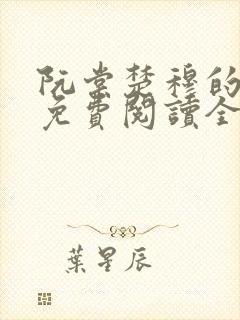 阮棠楚穆的
免費閱讀全
葉星辰